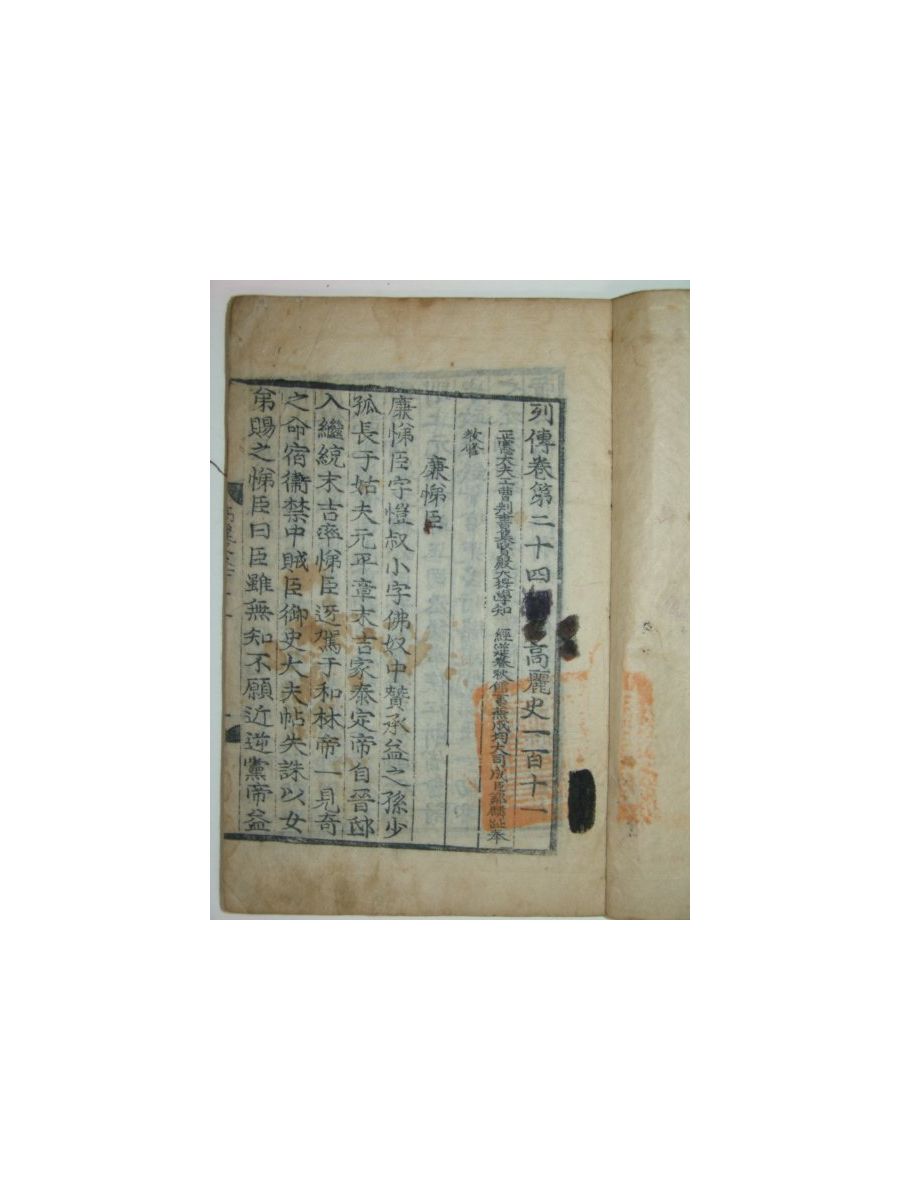 列傳卷第二十四 高麗史一百十一
正憲大夫工曹判書集賢殿大提學知 經筵春秋館事兼成均大司成臣鄭麟趾奉
敎修
廉悌臣
廉悌臣字愷叔小字佛奴中贊承益之孫少
孤長于姑夫元平章末吉家泰定帝自晉邸
入繼統末吉率悌臣迓駕于和林帝一見奇
之命宿衞禁中賊臣御史大夫帖失誅以女
弟賜之悌臣曰臣雖無知不願近逆黨帝益